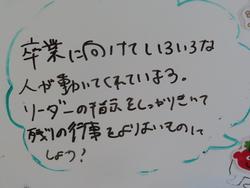 卒業に向けていろいろな
人が動いてくれています。
リーダーの指示をしっかりきいて
残りの行事をよりよいものに
しよう?